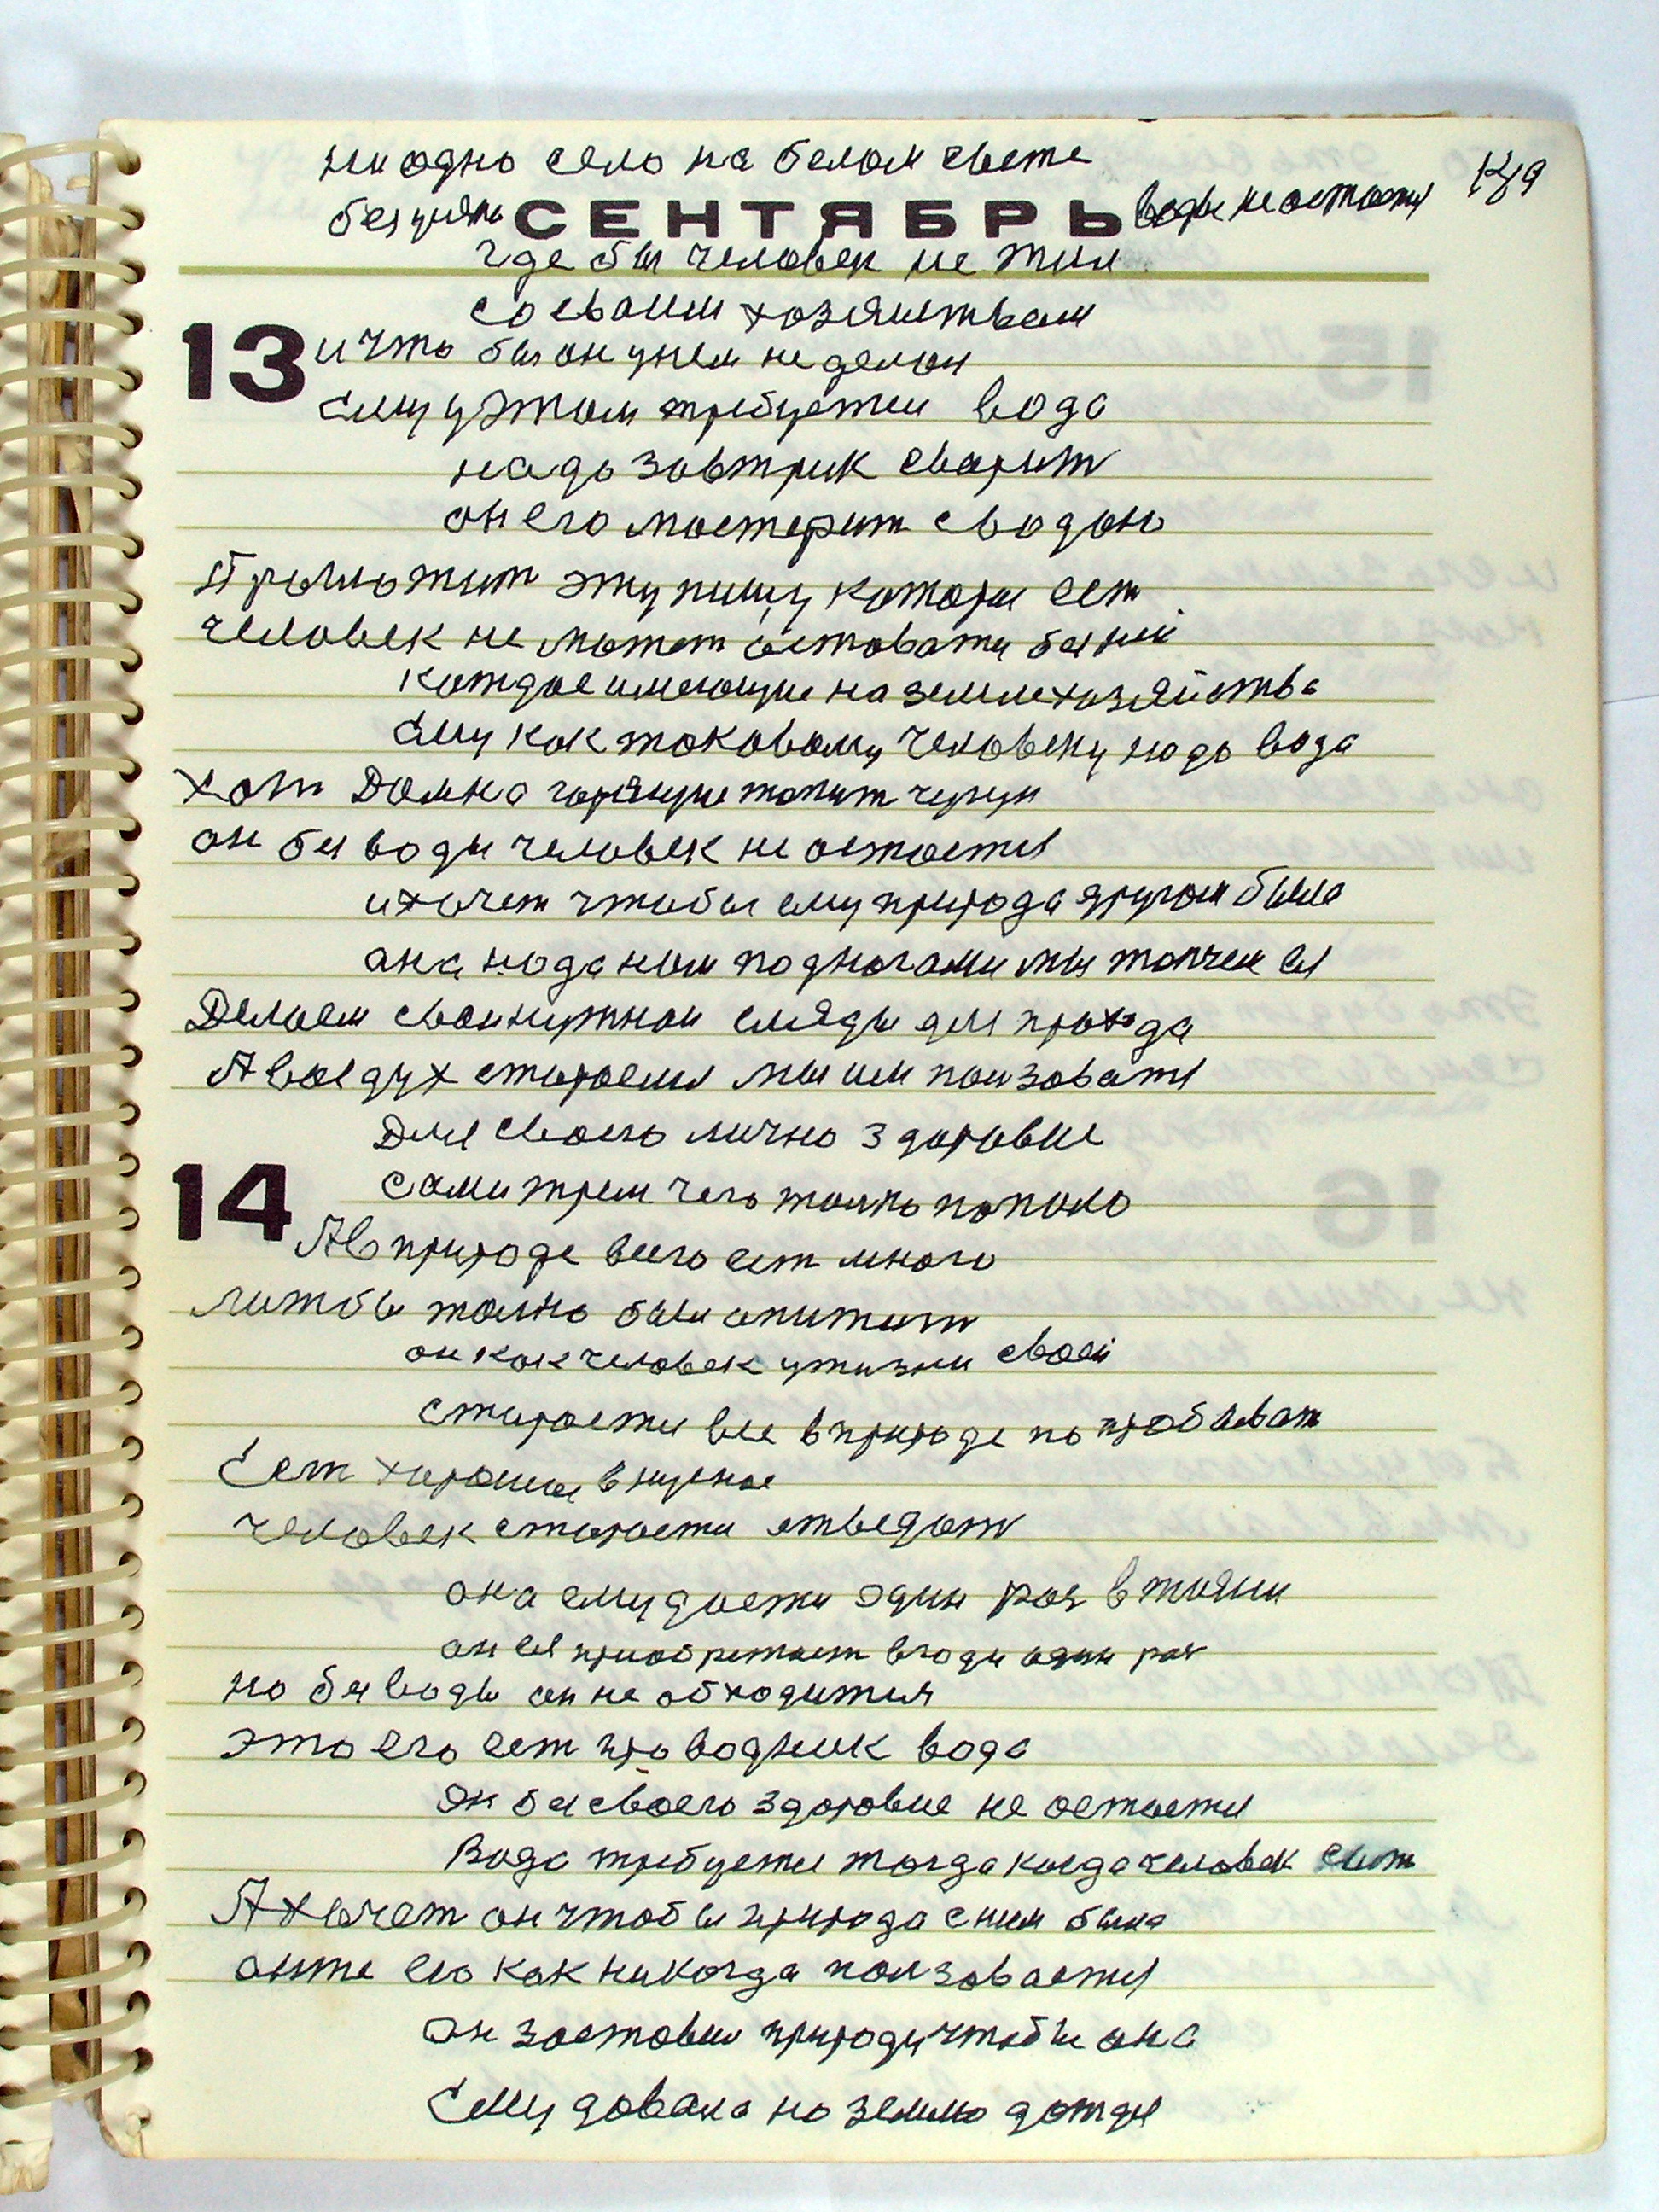 ни одно село на белом свете
СЕНТЯБРЬ воды не остается
где бы человек не жил
со своим хозяиством
13 и что бы он у нем не делал
ему у этом требуется вода
надо завтрик сварит
он его мастерит с водою
Приложит эту пищу которы ест
человек не может оставатся без ней
каждое имеющие на земле хозяйства
Ему как таковому человеку надо вода
хоть Домна горящие топит чугун
он без воды человек не остается
и хочет чтобы ему природа другом была
она нада нам под ногами мы топчем ея
Делаем свои нужнои следы для прохода
А воздух стараемся мы им ползоватя
Для своего лично здоровие
14 сами трем чего толко попало
А в природе всего ест много
лишбы толко были апитит
он как человек у жизни своей
старается все в природе попробыват
Ест хорошое вкусное
человек старается отведат
она ему дается один раз в жизни
он ея приобретает в годы один раз
но без воды он не обходится
это его ест проводник вода
Он без своего здоровие не остается
Вода требуется тогда когда человек ест
А хочет он чтобы природа с ним была
он же его как никогда ползовается
Он заставил природу чтобы она
Ему давала на землю дождя